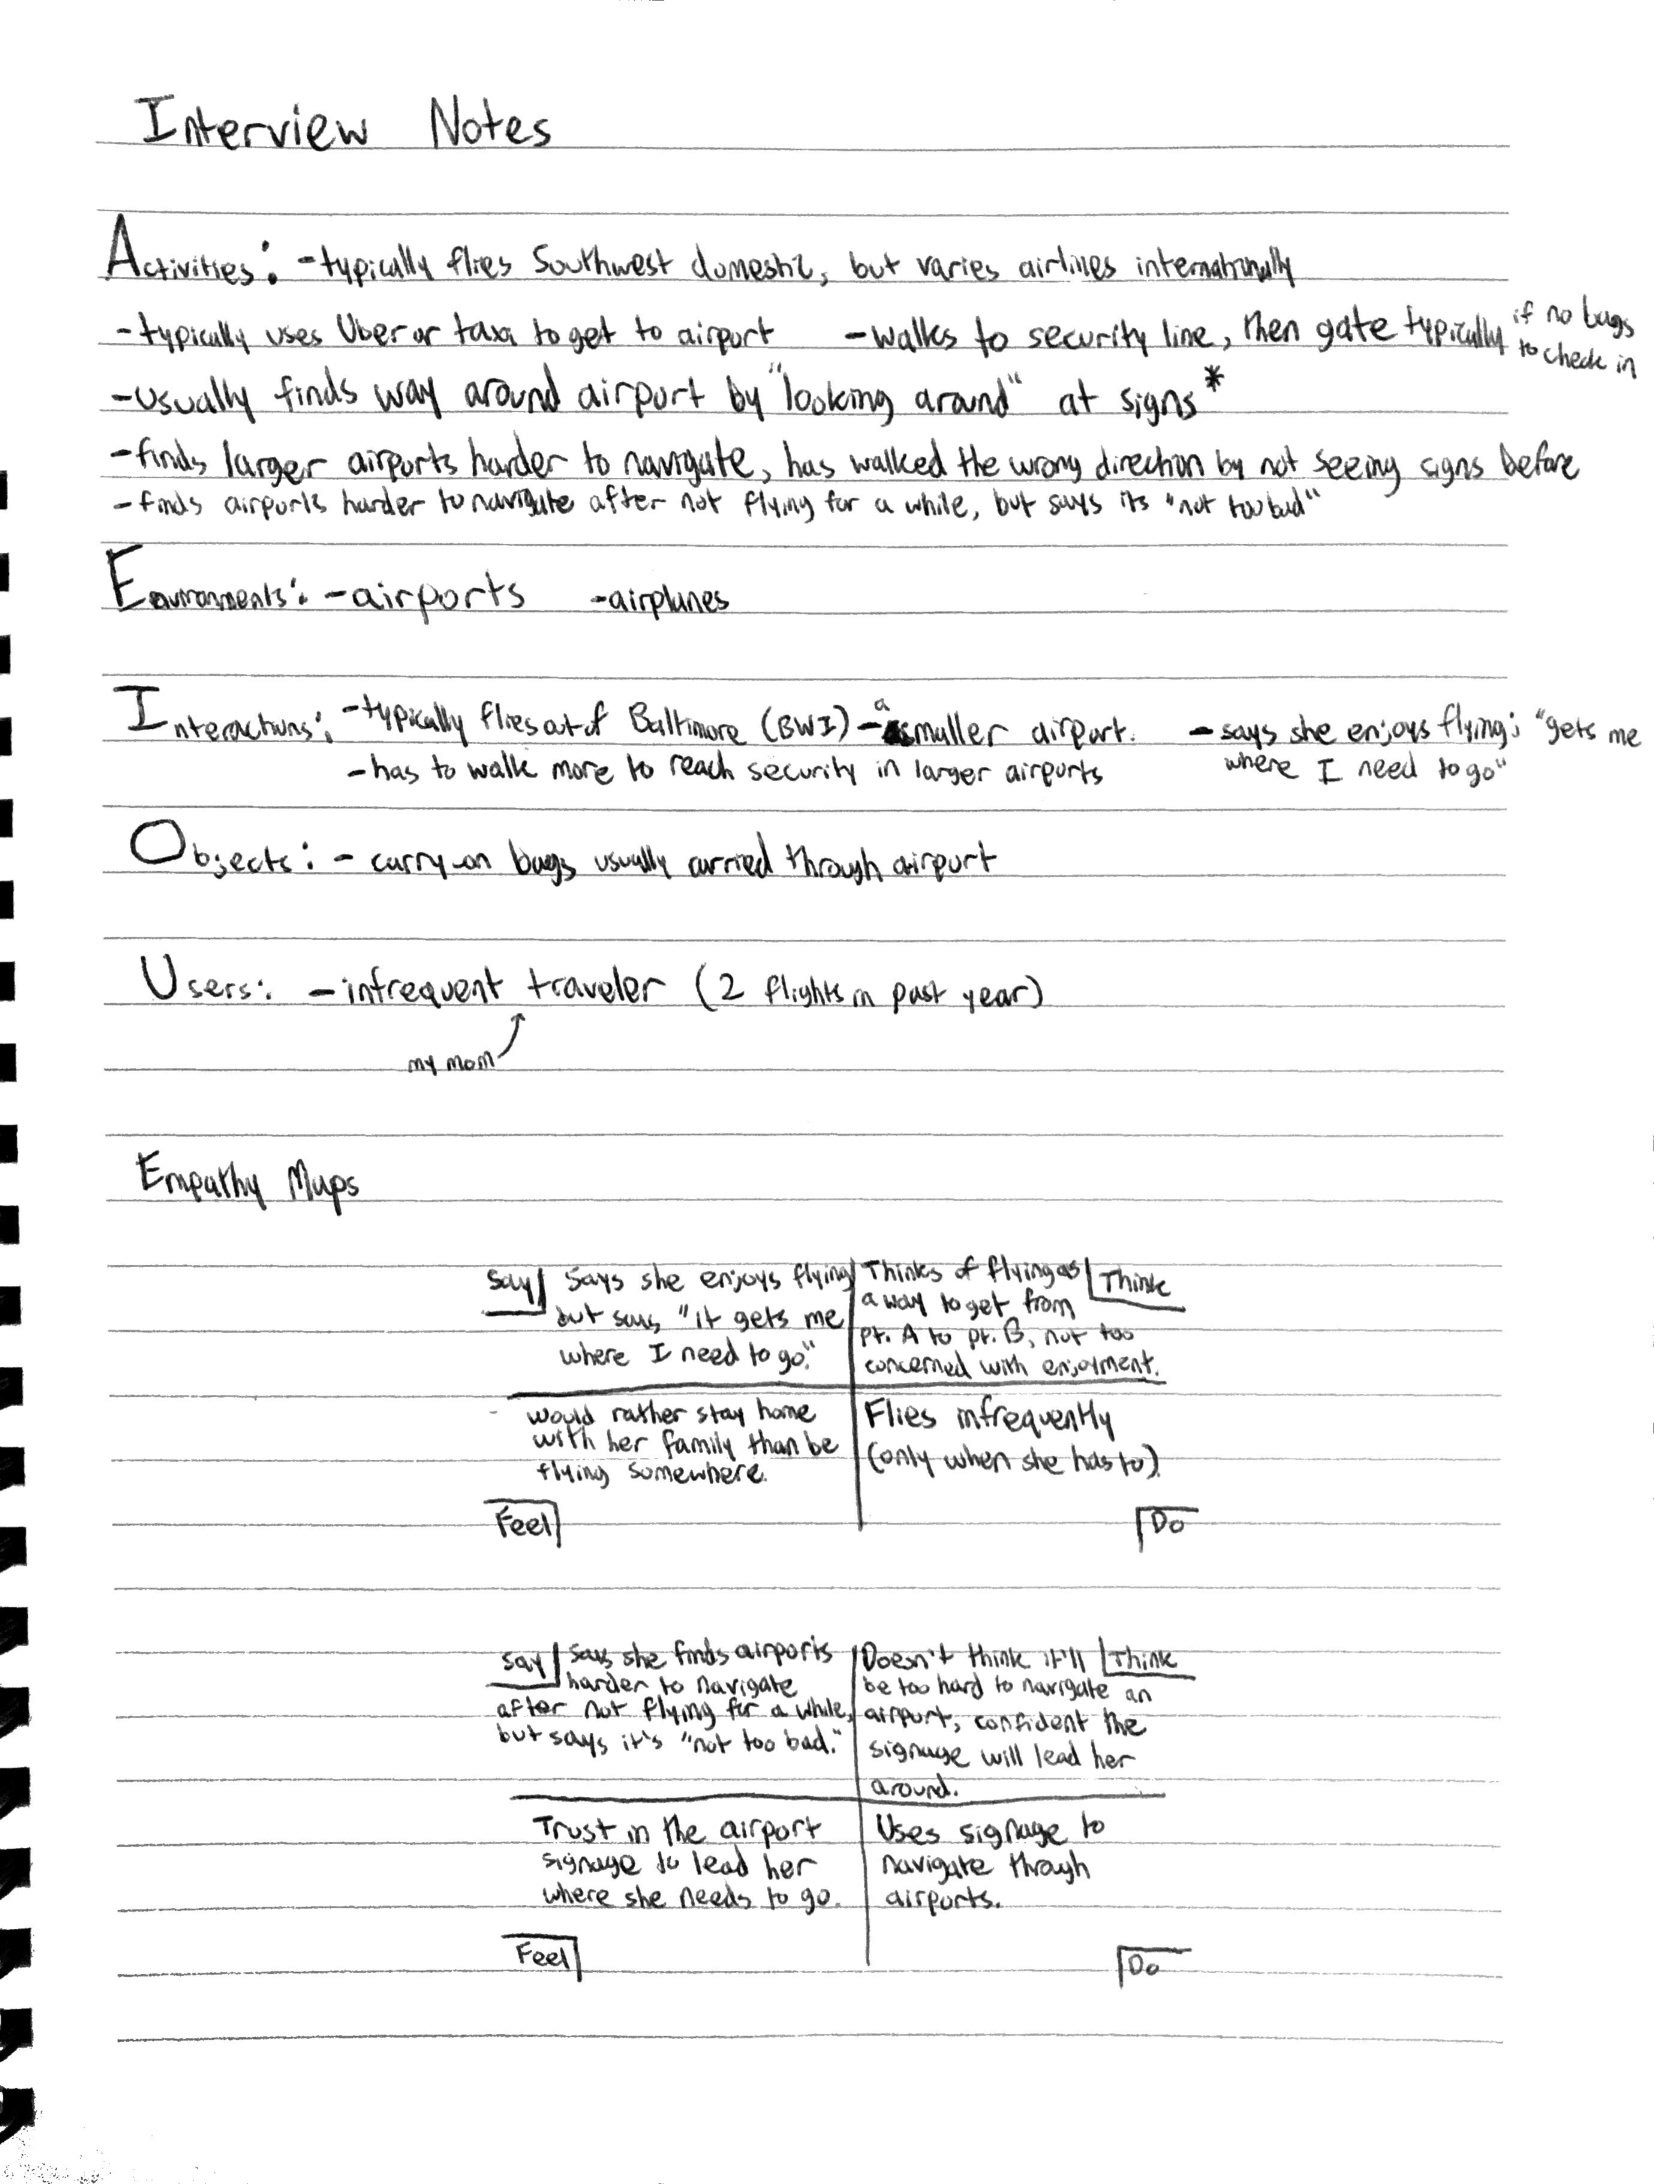 Interview Notes
Activities: -typically flies Southwest domestic, but varies airlines internationally
-typically uses Uber or taxi to get to airport -walks to security line, then gate typically if no bags to check in
-usually finds way around airport by "looking around" at signs*
-finds larger airports harder to navigate, has walked the wrong direction by not seeing signs before
-finds airports harder to navigate after not flying for a while, but says its "not too bad"
Environments: -airports -airplanes
Interactions: -typically flies out of Baltimore (BWI) - a smaller airport. -says she enjoys flying; "gets me
-has to walk more to reach security in larger airports where I need to go"
Objects: - carry-on bags usually carried through airport
Users: -infrequent traveler (2 flights in past year)
my mom
Empathy Maps
Say
Says she enjoys flying
but says "it gets me
where I need to go."
Think
Thinks of flying as
a way to get from
pt. A to pt. B, not too
concerned with enjoyment.
- would rather stay home
with her family than be
flying somewhere.
Feel
Flies infrequently
(only when she has to).
Do
Say
Says she finds airports
harder to navigate
after not flying for a while,
but says it's "not too bad."
Think
Doesn't think it'll
be too hard to navigate an
airport, confident the
signage will lead her
around.
Trust in the airport
signage to lead her
where she needs to go.
Feel
Uses signage to
navigate through
airports.
Do